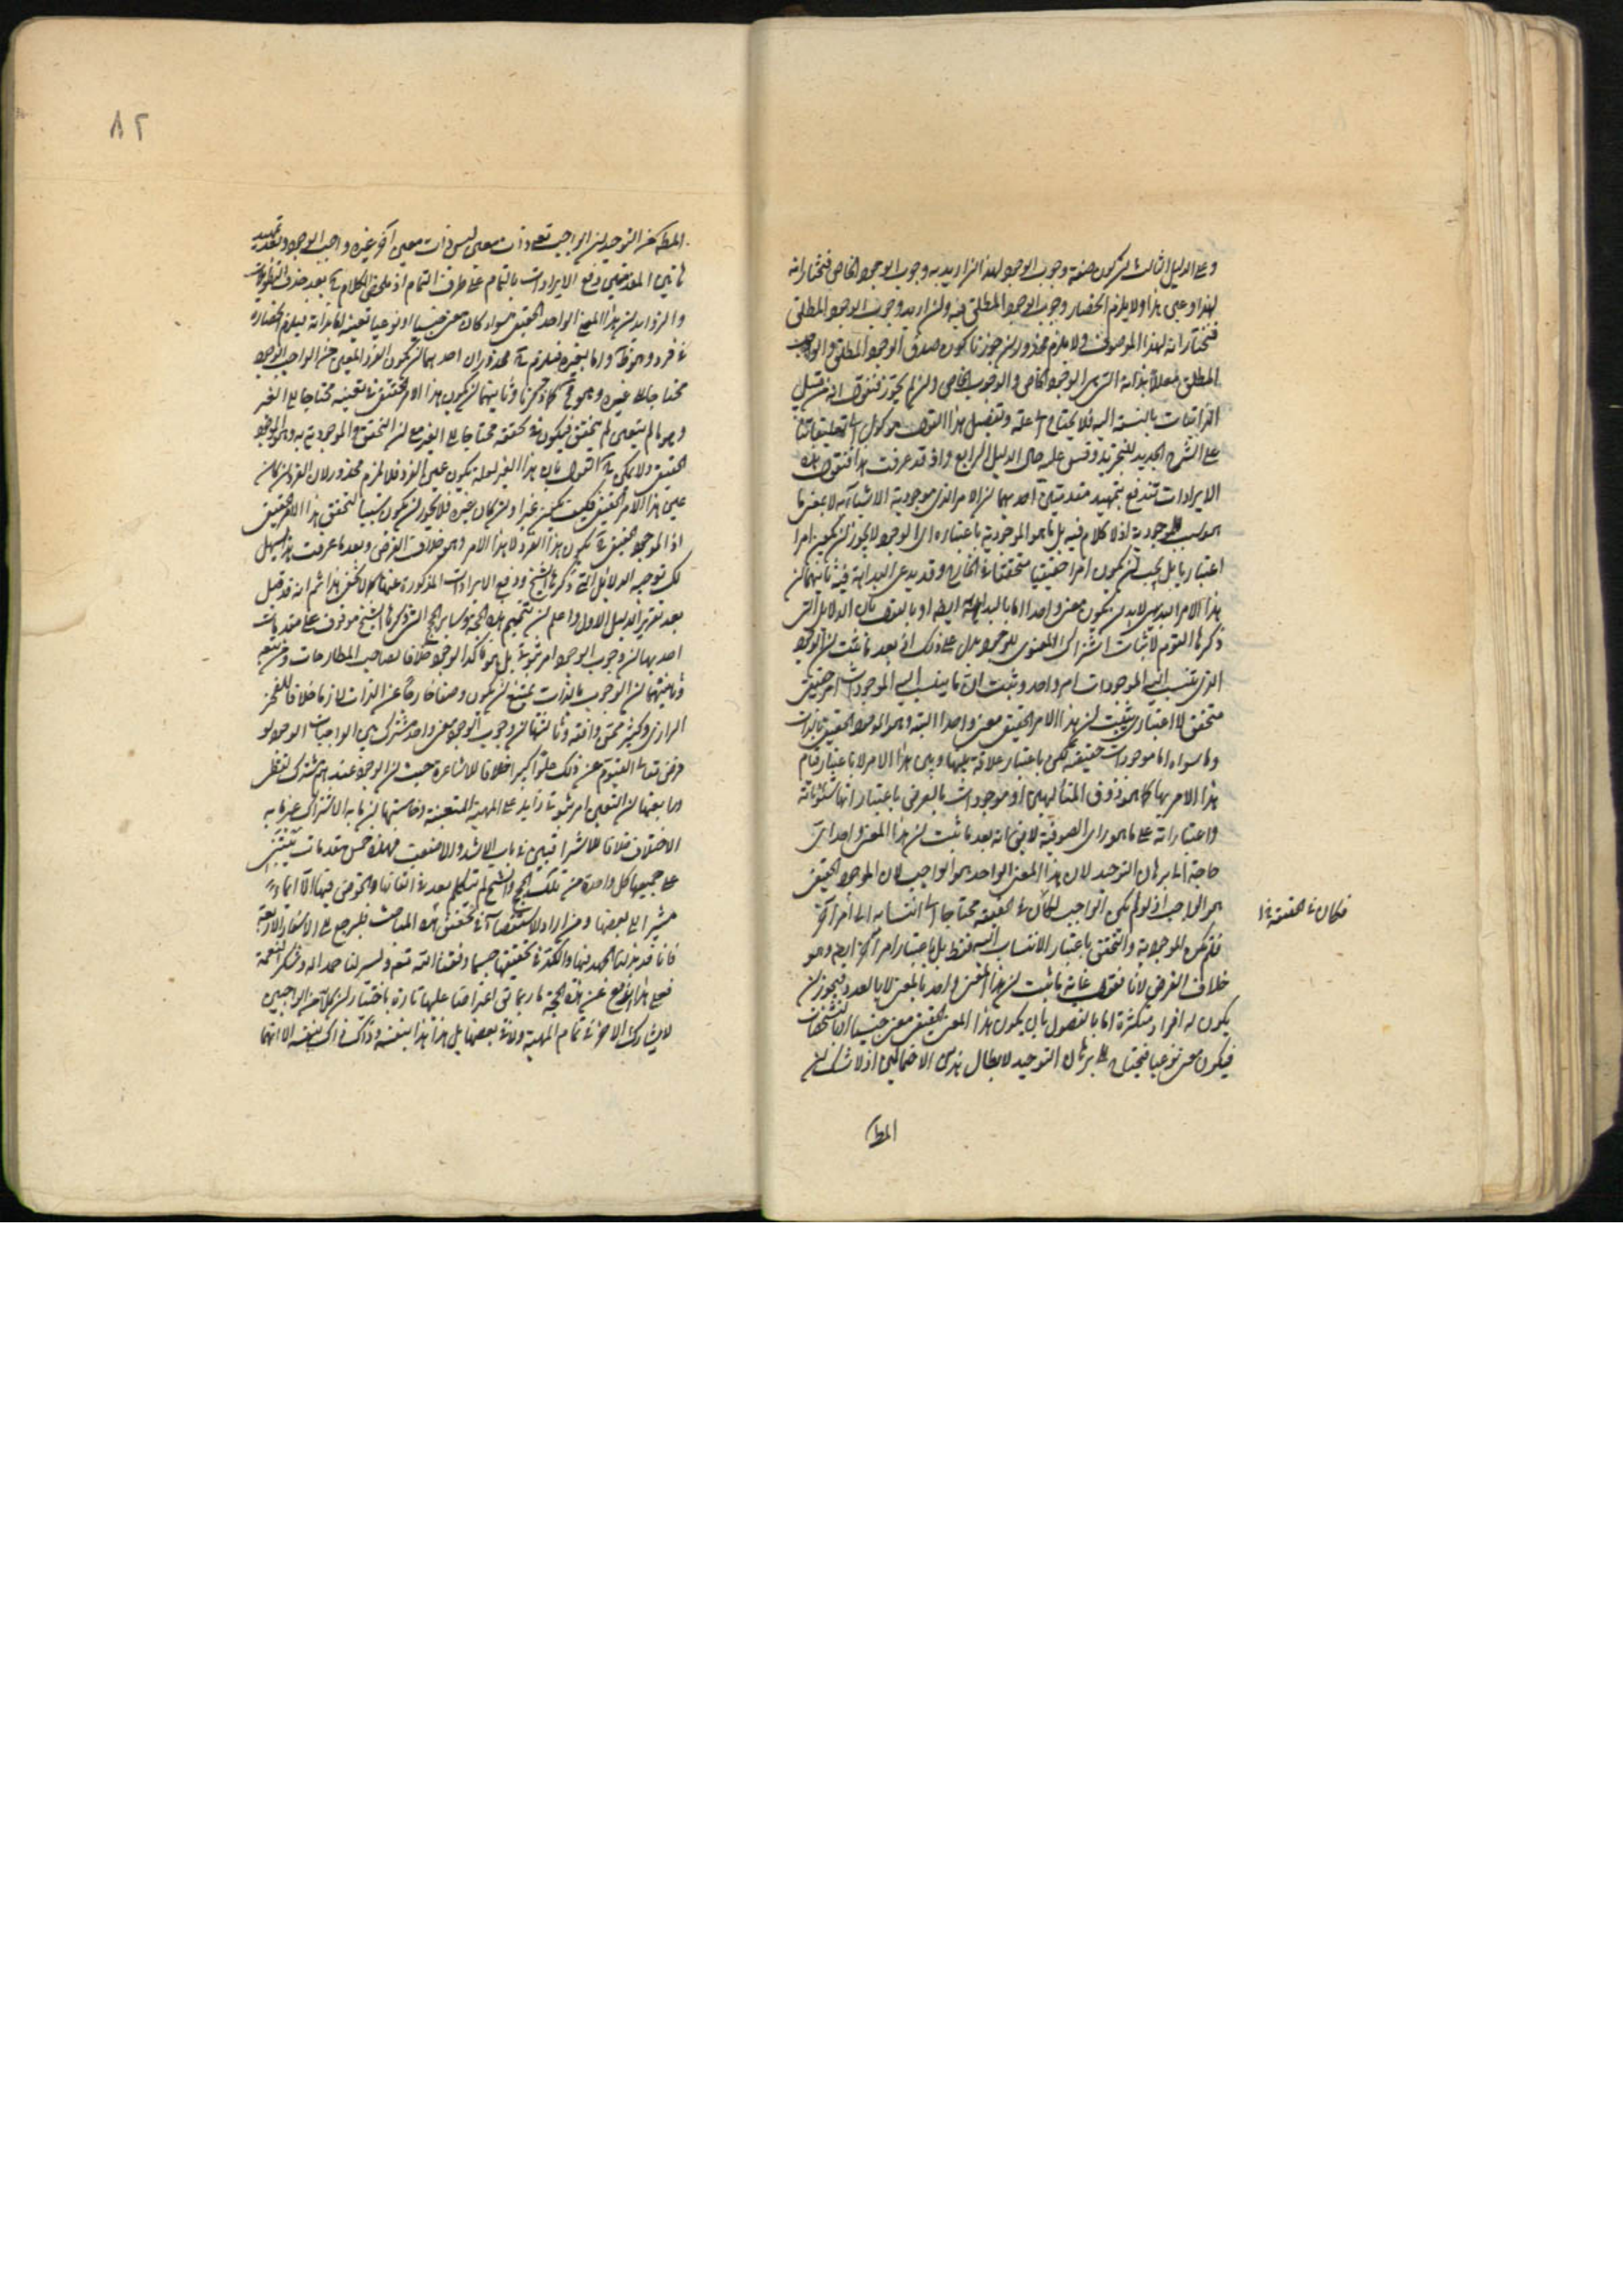 وعلى الدليل الثالث ان كون صفة وجوب الوجود لهذا ان اريد به وجوب الوجود الخاص فنختار انه
لهذا وعين هذا ولا يلزم انحصار وجوب الوجود المطلق فيه وان اريد وجوب الوجود المطلق
فنختار انه لهذا الموصوف ولا يلزم محذور ان جوزنا كون صدق الوجود المطلق والواجب
المطلق معللا بذاته الوجود الخاص والوجوب الخاص وان لم يجوز فنقول انه من قبيل
الذاتيات بالنسبة اليه فلا يحتاج الى علة وتفصيل هذا القول موكول الى تعليقاتنا
على الشرح الجديد للتجريد وقس عليه حال الدليل الرابع واذ قد عرفت هذا فنقول هذه
الايرادات تندفع بتمهيد مقدمتين احديهما ان الامر الذي موجودية الاشياء به لا بمعنى ما
هو سبب الموجودية اذ لا كلام فيه بل ما هو الموجودية باعتباره اي الوجود لا يجوز ان يكون امرا
اعتباريا بل يجب ان يكون امرا حقيقيا متحققا في الخارج وقد يدعى البداهة فيه ثانيهما ان
هذا الامر لابد ان يكون معنى واحدا اما بالبداهة ايضا او بالقول بان الدلائل التي
ذكرها القوم لاثبات اشتراك المعنوي للوجود يدل على ذلك اذ بعد ما ثبت ان الوجود
الذي ينسب اليه الموجودات امر واحد وثبت ان ما ينسب اليه الموجودات امر حقيقي
متحقق لا اعتباري ثبت ان هذا الامر الحقيقي معنى واحد البتة وهو الموجود الحقيقي بالذات
وما سواه اما موجودات حقيقة لكن باعتبار علاقة بينها وبين هذا الامر لا باعتبار قيام
هذا الامر بها كما هو ذوق المتألهين او موجودات بالعرض باعتبار انها شئوناته
واعتباراته على ما هو راى الصوفية لا يق انه بعد ما ثبت ان هذا المعنى واحد اى
حاجة الى برهان التوحيد لان هذا المعنى الواحد هو الواجب لان الموجود الحقيقي
هو الواجب اذ لو لم يكن الواجب لكان في الحقيقة محتاجا الى انتسابه الى امر آخر
فكان في الحقيقة
فلم يكن الموجودية والتحقق باعتبار الانتساب اليه فقط بل باعتبار امر آخر ايضا وهو
خلاف الفرض لانا نقول غاية ما ثبت ان هذا المعنى واحد بالمعنى لا بالعدد فيجوز ان
يكون له افراد متكثرة اما بالفصول بان يكون هذا المعنى الحقيقي معنى جنسيا او بالتشخصات
فيكون معنى نوعيا فيحتاج الى برهان التوحيد لابطال هذين الاحتمالين اذ لا شك ان
المط
٨٢
المط من التوحيد ان الواجب تعـ ذات معين ليس ذات معين آخر غيره واجب الوجود وبعد تمهيد
هاتين المقدمتين دفع الايرادات بالتمام على طرف التمام اذ ملخص الكلام بعد حذف التطويلات
والزوايد ان هذا المعنى الواحد الحقيقي سواء كان معنى جنسيا او نوعيا تعينه اما بذاته فيلزم انحصاره
في فرد وهو المط واما بغيره فيلزم محذوران احدهما ان يكون الفرد المعين من الواجب الوجود
محتاجا الى غيره وهو مح كما ذكرنا وثانيهما ان يكون هذا الامر الحقيقي في تعينه محتاجا الى الغير
وهو ما لم يتعين لم يتحقق فيكون في تحققه محتاجا الى الغير مع ان التحقق والموجودية به وهو الموجود
الحقيقي ولا يمكن القول بان هذا الغير لعله يكون عين الفرد فلا يلزم محذور لان الفرد ان كان
عين هذا الامر الحقيقي فكيف يكون غيرا وان كان غيره فلا يجوز ان يكون سببا لتحقق هذا الامر الحقيقي
اذ الموجود الحقيقي يكون هذا الفرد لا هذا الامر وهو خلاف الفرض وبعد ما عرفت هذا سهل
لك توجيه الدلائل التي ذكرها الشيخ ودفع الايرادات المذكورة عنها كما لا يخفى هذا ثم انه قد قيل
بعد تقرير الدليل الاول واعلم ان تتميم هذه الحجة وساير الحجج التي ذكرها الشيخ موقوف على مقدمات
احديها ان وجوب الوجود امر ثبوتي بل هو تأكد الوجود خلافا لصاحب المطارحات ومن تبعه
وثانيتها ان الوجوب بالذات يمتنع ان يكون وصفا خارجا عن الذات لازما خلافا للفخر
الرازي وكثير ممن وافقه وثالثتها ان وجوب الوجود معنى واحد مشترك بين الواجبات الوجود لو
فرض تعالى القيوم عن ذلك علوا كبيرا خلافا للاشاعرة حيث ان الوجود عندهم مشترك لفظي
ورابعتها ان التعين امر ثبوتي زايد على المهية المتعينة وخامستها ان ما به الاشتراك غير ما به
الاختلاف خلافا للاشراقيين في باب الاشد والاضعف فهذه خمس مقدمات يبتنى
على جميعها كل واحدة من تلك الحجج والشيخ لم يتكلم بعد في اثباتها والخوض فيها الا ايماء
مشيرا الى بعضها ومن اراد الاستقصاء في تحقيق هذه المباحث فليرجع الى الاسفار الاربعة
فانا قد بذلنا الجهد فيها والكد في تحقيقها حسبما وفقنا الله تعـ ويسر لنا حمدا له وشكرا لنعمة
فعلى هذا اندفع عن هذه الحجة ما ربما يق اعتراضا عليها تارة باختيار ان كلا من الواجبين
لا يشارك الاخر في تمام المهية ولا في بعضها بل هذا هذا بنفسه وذاك ذاك بنفسه الا انهما